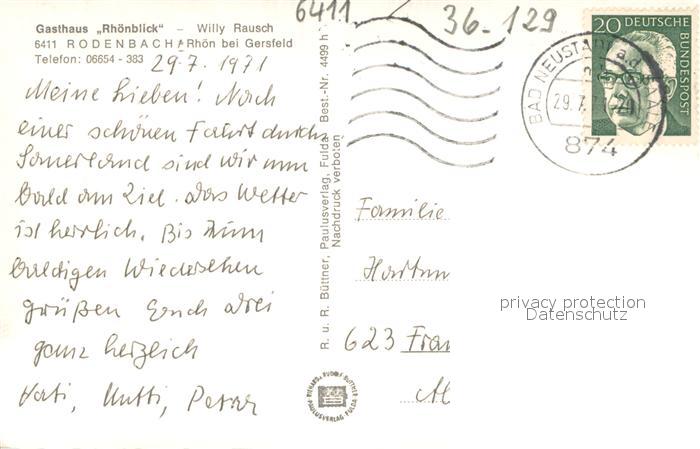 Gasthaus „Rhönblick" – Willy Rausch
6411 RODENBACH/Rhön bei Gersfeld
Telefon: 06654 - 383
29.7.1971
Meine Lieben! Nach
einer schönen Fahrt durchs
Sauerland sind wir nun
bald am Ziel. Das Wetter
ist herrlich. Bis zum
baldigen Wiedersehen
grüßen Euch drei
ganz herzlich
Vati, Mutti, Peter
R. u. R. Büttner, Paulusverlag, Fulda Best.-Nr. 4499 h
Nachdruck verboten
RICHARD u. RUDOLF BÜTTNER
PAULUSVERLAG FULDA
6411
36-129
BAD NEUSTADT a.d. SAALE
29.7.
874
20 DEUTSCHE
BUNDESPOST
Familie
Hartm
623 Fran
privacy protection
Datenschutz